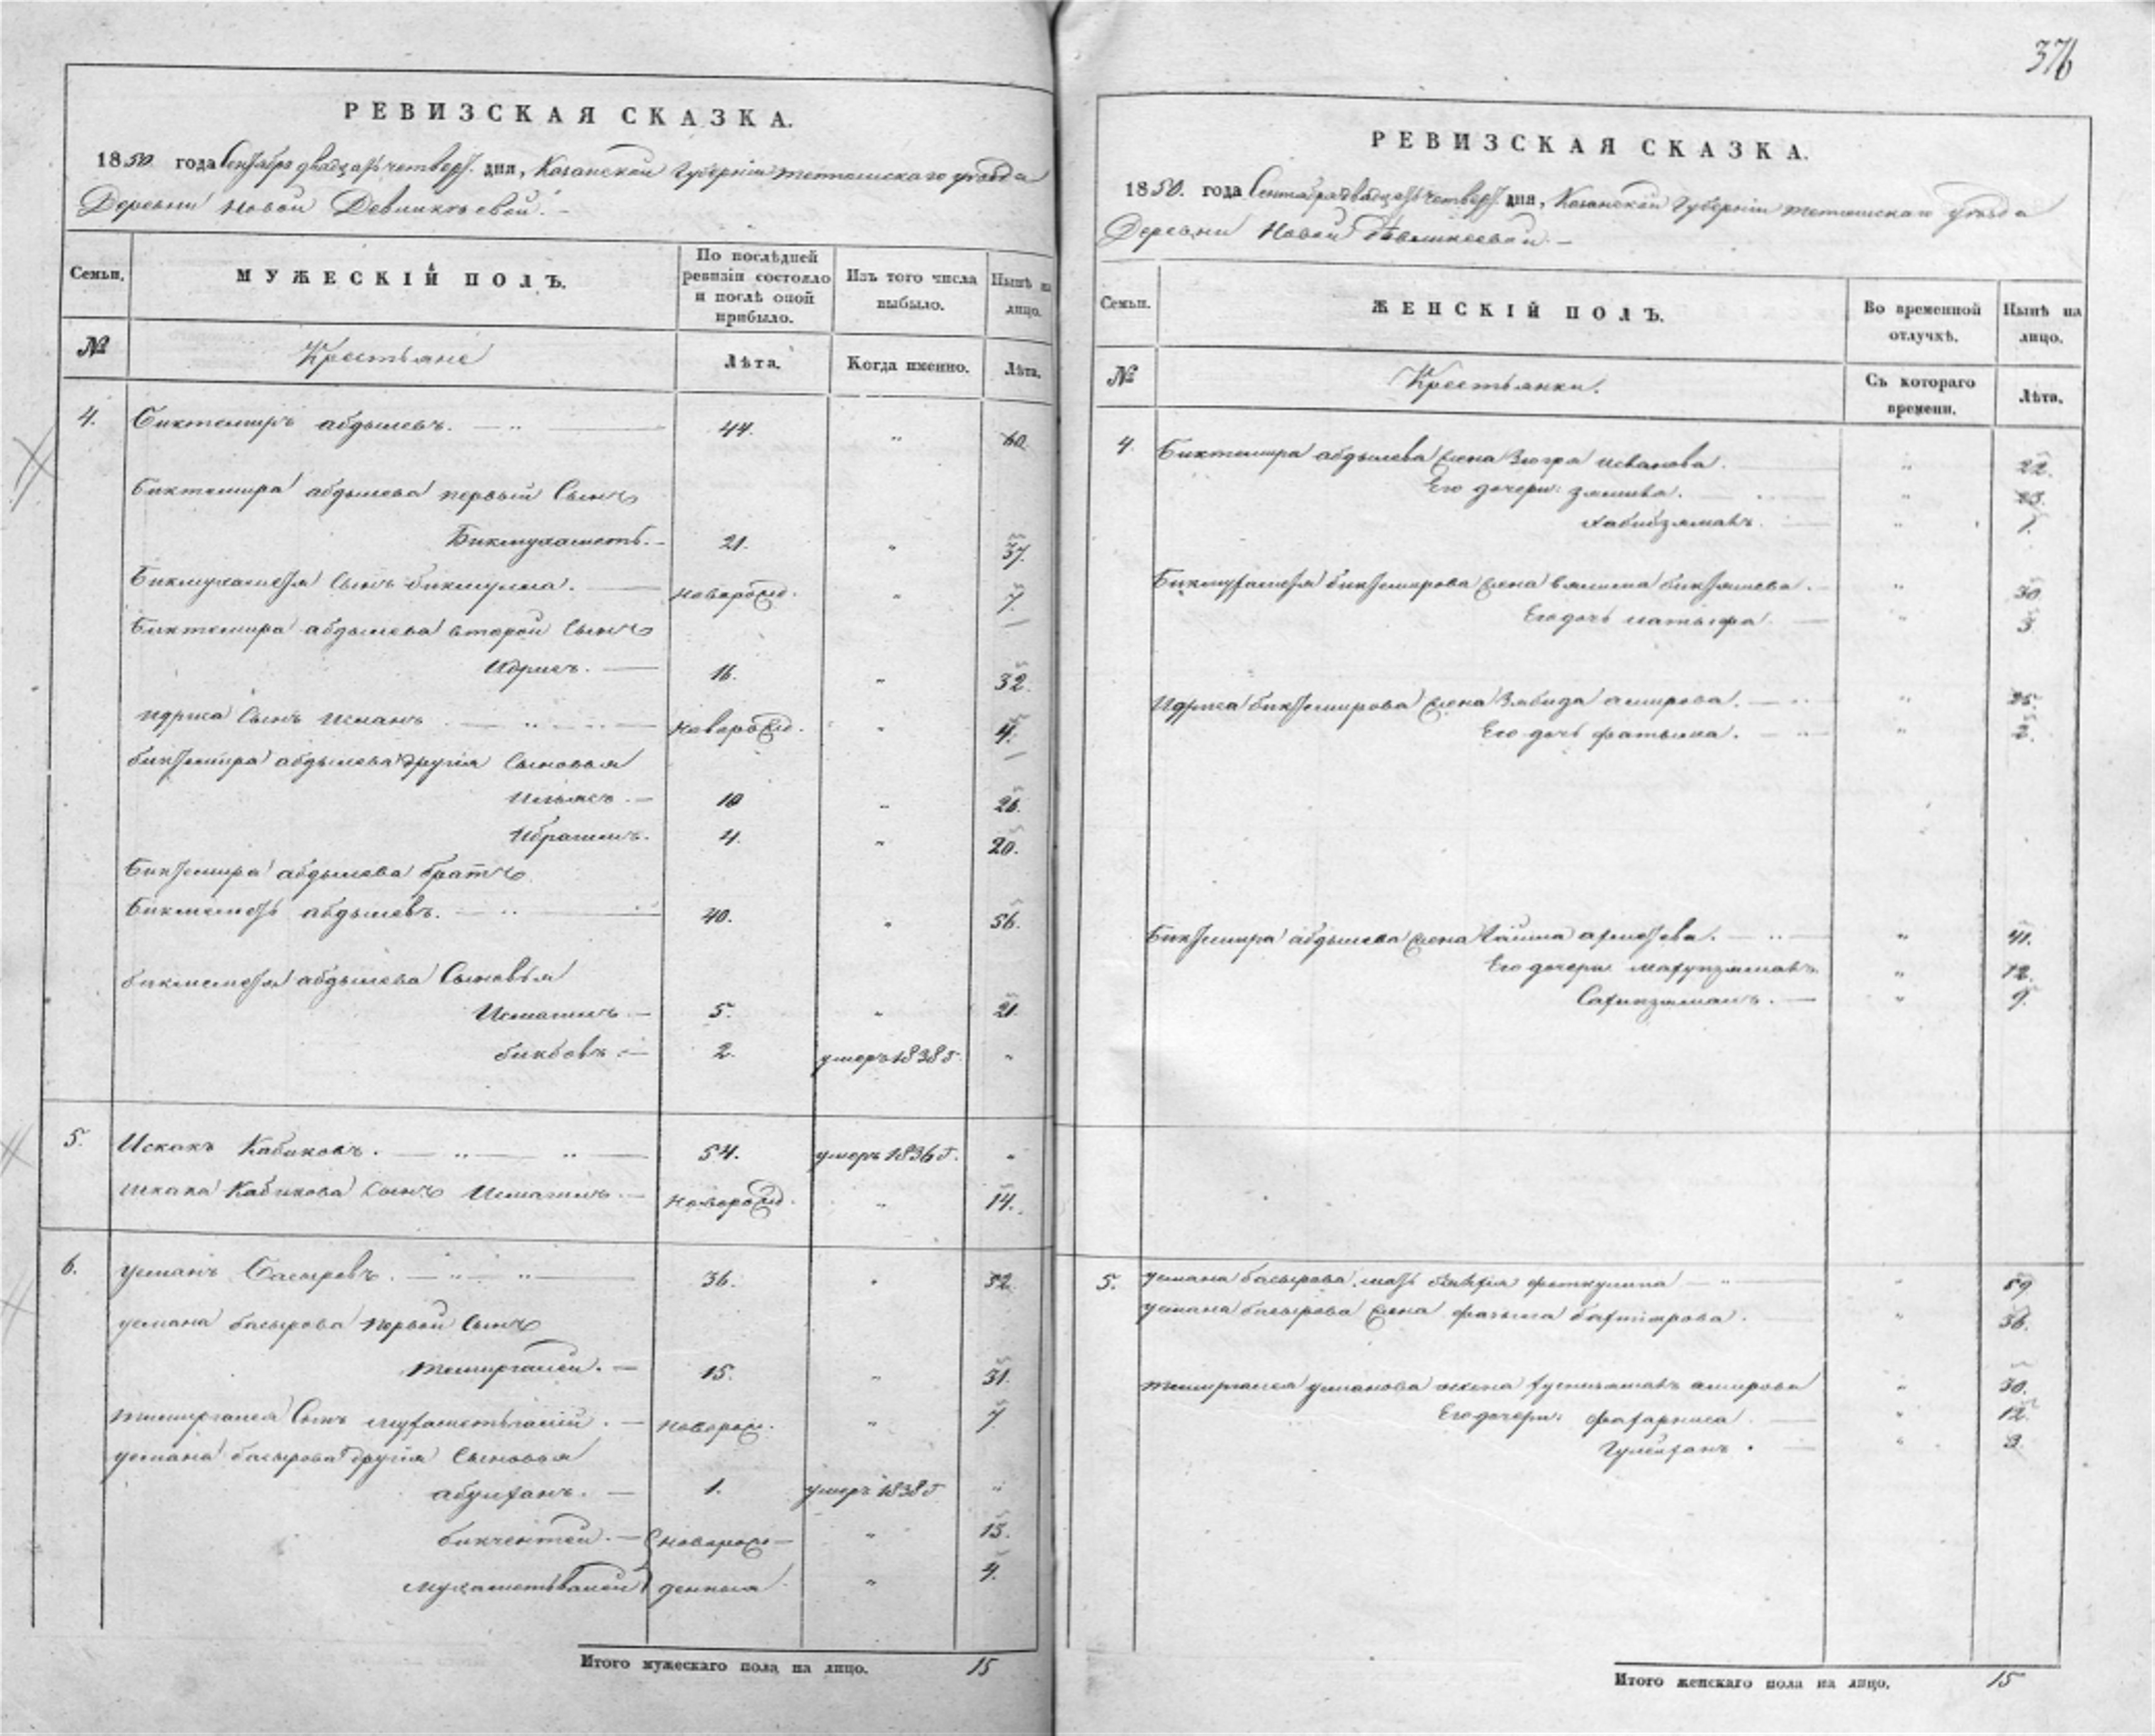 376
РЕВИЗСКАЯ СКАЗКА.
1850 года Сентября двадцать четверт. дня, Казанской Губерніи тетюшскаго уѣзда
Деревни Новой Девликѣевой.
Семьи. МУЖЕСКІЙ ПОЛЪ. По послѣдней ревизіи состояло и послѣ оной прибыло. Изъ того числа выбыло. Нынѣ на лицо.
№ Крестьяне Лѣта. Когда именно. Лѣта.
4. Биктемиръ абдышевъ. 44. " 60.
Биктемира абдышева первый Сынъ
Бикмухаметь. 21. " 37.
Бикмухаметя Сынъ бикмулла. новорожд. " 7.
Биктемира абдышева второй Сынъ
Идрисъ. 16. " 32.
идриса Сынъ новорожд. " 4.
биктемира абдышева другія Сыновья
Ильясъ 10 " 26.
Ибрагимъ. 4. " 20.
Биктемира абдышева братъ
Бикметь абдышевъ. 40. " 56.
абдышева Сыновья
Исмагилъ 5. " 21.
2. умеръ 1838 г. "
5. Искакъ Кабиковъ. 54. умеръ 1836 г. "
Искака Кабикова Сынъ Исмагилъ новорожд. " 14.
6. усманъ Басыровъ. 36. " 52.
усмана басырова первой Сынъ
темиргалей. 15. " 31.
темиргалея Сынъ мухаметьгалій. новорож. " 7.
усмана басырова другія Сыновья
абулханъ. 1. умеръ 1838 г. "
бикчентей. новорож- " 15.
мухаметьвалей денныя " 4.
Итого мужескаго пола на лицо. 15
РЕВИЗСКАЯ СКАЗКА.
1850. года Сентября двадцать четверт. дня, Казанской Губерніи тетюшскаго уѣзда
Деревни Новой Девликеевой.
Семьи. ЖЕНСКІЙ ПОЛЪ. Во временной отлучкѣ. Нынѣ на лицо.
№ Крестьянки. Съ котораго времени. Лѣта.
4. Биктемира абдышева жена Зюгра " 22.
Его дочери: " 23.
Хабибзямалъ " 1.
Бикмухаметя биктемирова жена бикташева. " 30.
Его дочь " 3.
Идриса биктемирова жена Зябида амирова. " 25.
Его дочь фатыма. " 2.
абдышева жена " 41.
Его дочери " 12.
" 9.
5. усмана басырова мать феткулина " 59
усмана басырова жена " 36.
темиргалея усманова жена амирова " 30.
Его дочери: " 12.
Гулюханъ. " 3.
Итого женскаго пола на лицо. 15